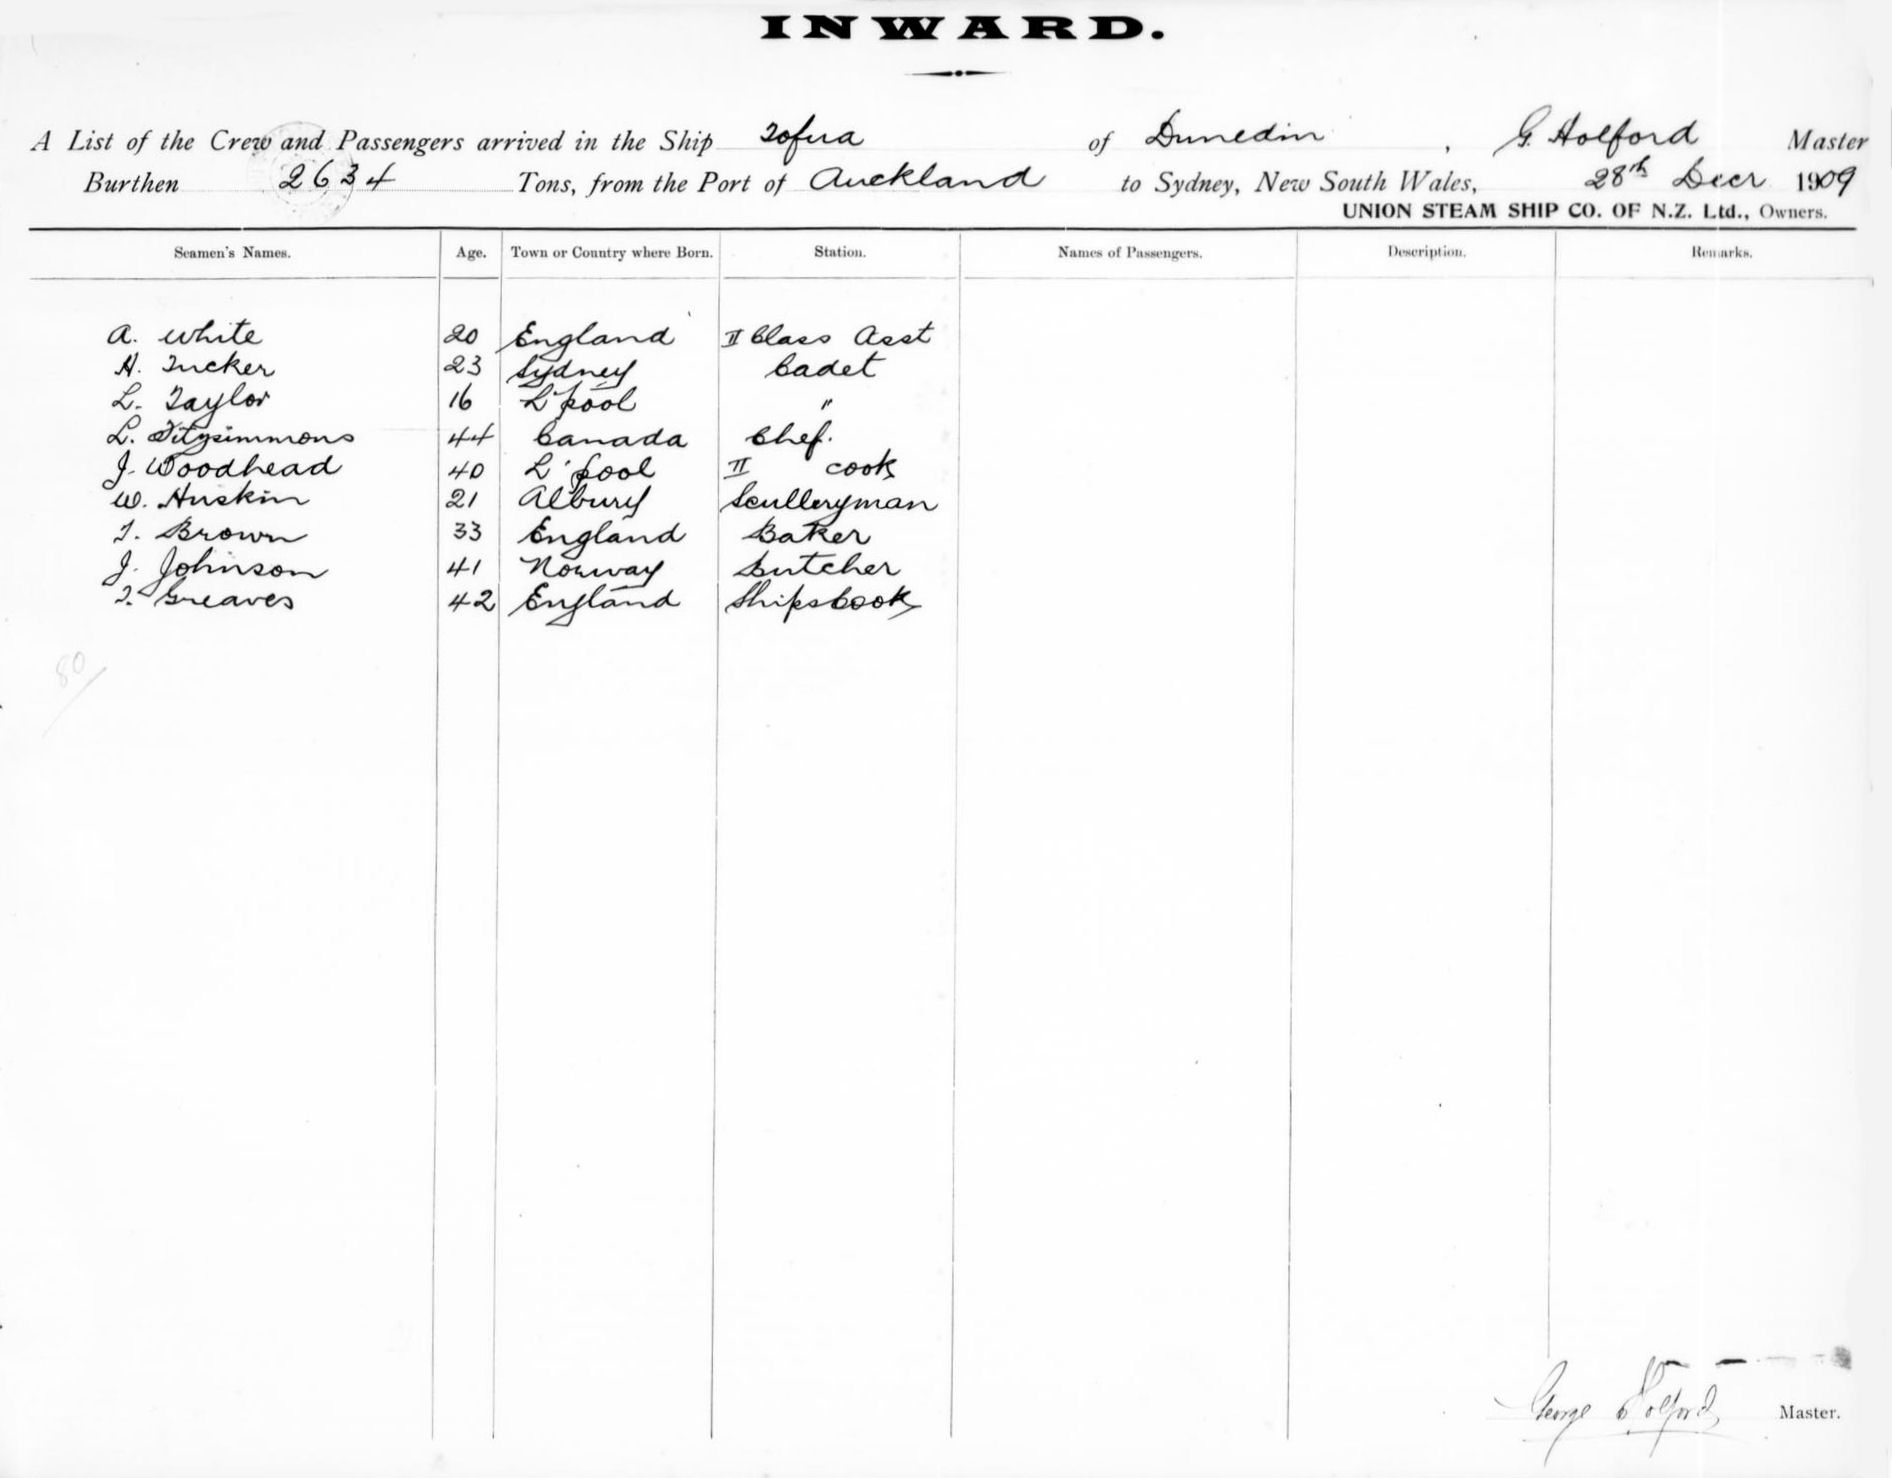 INWARD.
A List of the Crew and Passengers arrived in the Ship Tofua of Dunedin, G. Holford Master
Burthen 2634 Tons, from the Port of Auckland to Sydney, New South Wales, 28th Decr 1909
UNION STEAM SHIP CO. OF N.Z. Ltd., Owners.
Seamen's Names. Age. Town or Country where Born. Station. Names of Passengers. Description. Remarks.
A. White 20 England II Class Asst
H. Tucker 23 Sydney Cadet
L. Taylor 16 L'pool "
L. Fitzsimmons 44 Canada Chef.
J. Woodhead 40 L'pool II cook
W. Huskin 21 Albury Sculleryman
T. Brown 33 England Baker
J. Johnson 41 Norway Butcher
T. Greaves 42 England Ships Cook
80/
George Holford Master.